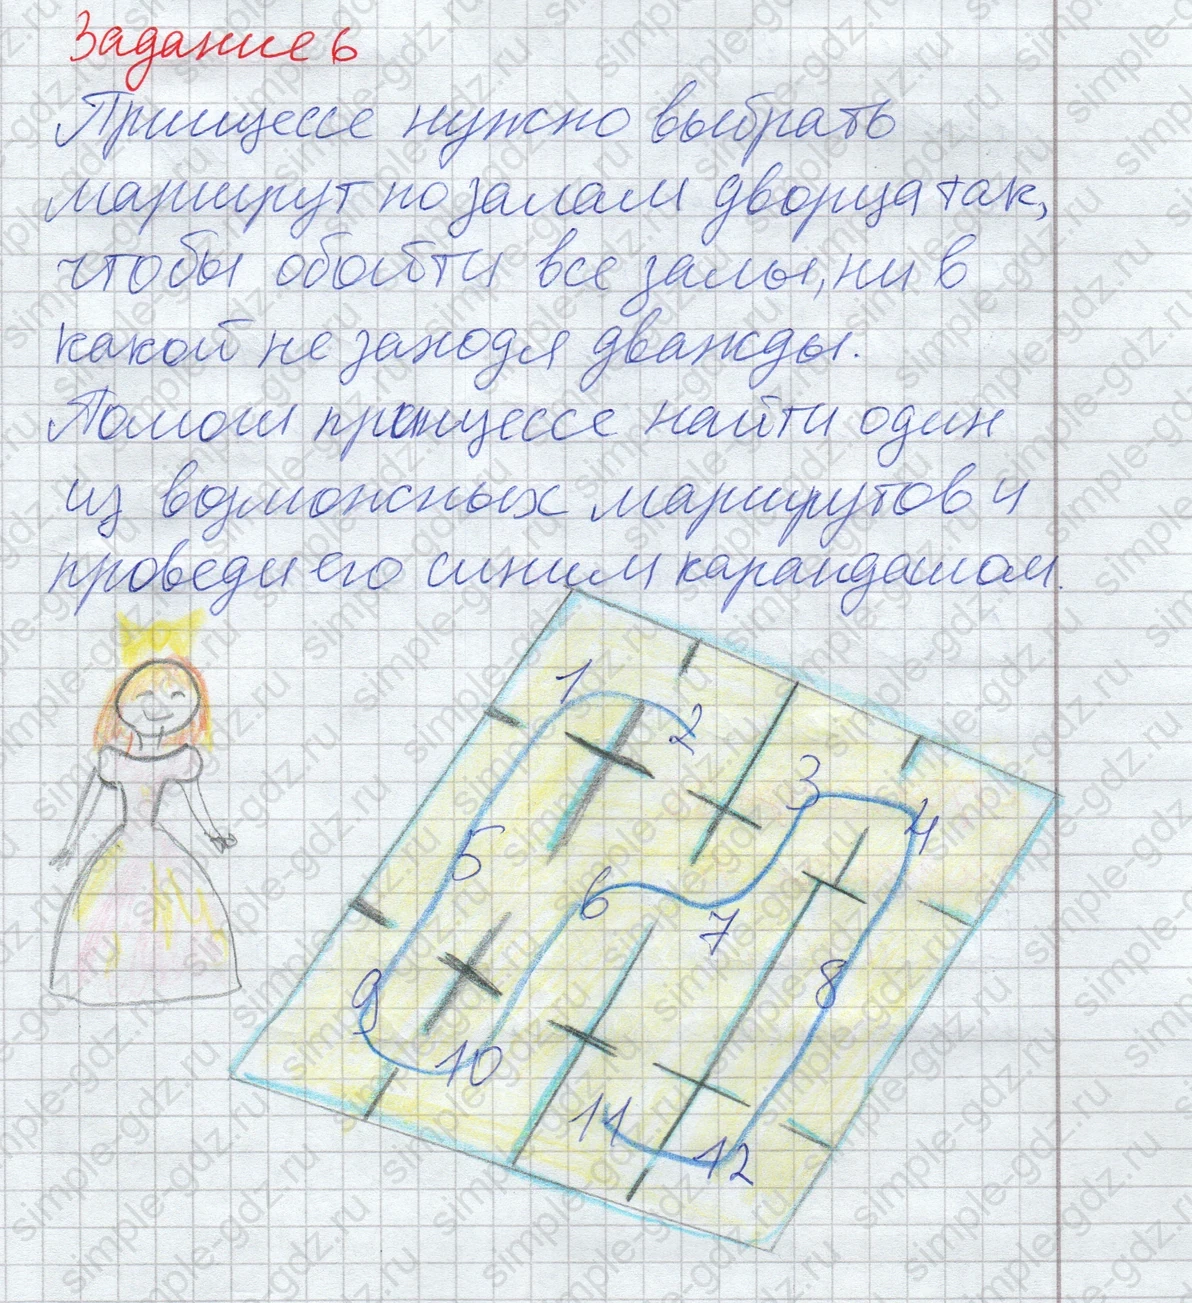 Задание 6
Принцессе нужно выбрать
маршрут по залам дворца так,
чтобы обойти все залы, ни в
какой не заходя дважды.
Помоги принцессе найти один
из возможных маршрутов и
проведи его синим карандашом.
1
2
3
4
5
6
7
8
9
10
11
12
simple-gdz.ru